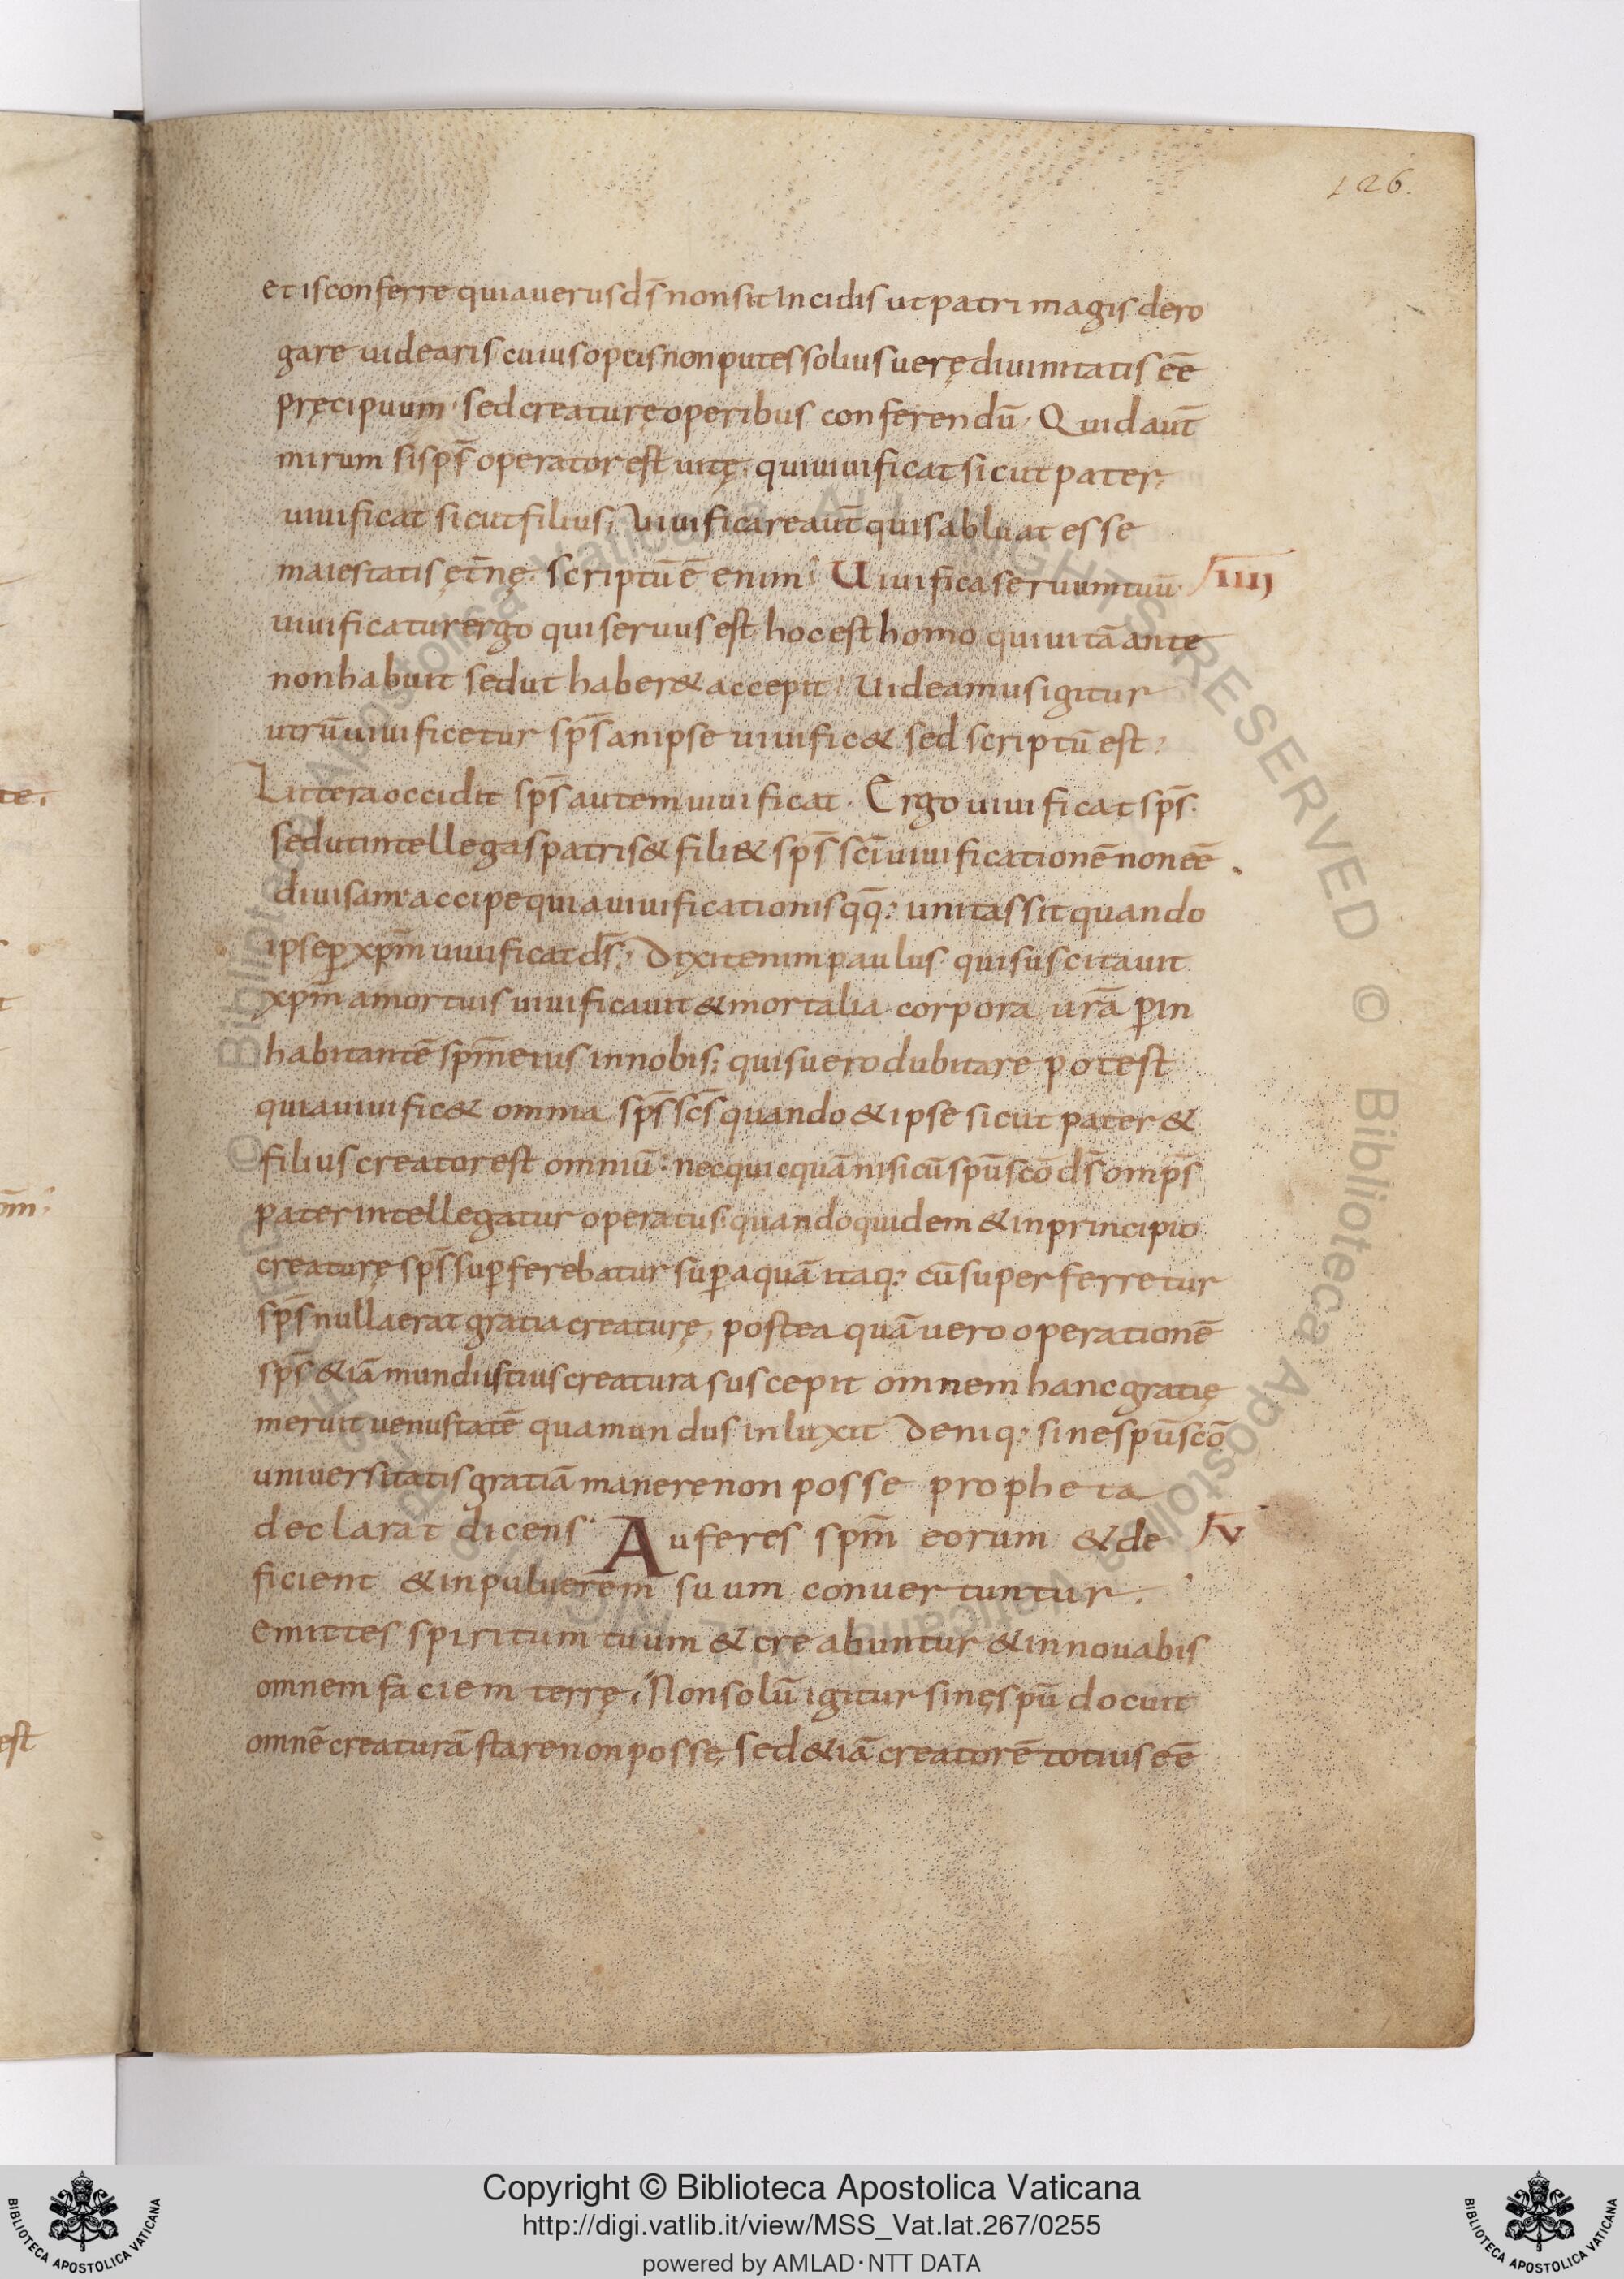 126.
et is conferre quia uerus d̄s non sit Incidis ut patri magis dero
gare uidearis cuius opus non putes solius uerę diuinitatis eē
pręcipuum· sed creaturę operibus conferendū· Quid aut̄
mirum si sp̄s operator est uitę· qui uiuificat sicut pater;
uiuificat sicut filius; Viuificare aut̄ quis abluat esse
maiestatis ęt̄nę· scriptū ē enim· Uiuifica seruum tuū· IIII
uiuificatur ergo qui seruus est· hoc est homo qui uitā ante
non habuit sed ut haber& accepit· Uideamus igitur
utrū uiuificetur sp̄s an ipse uiuific& sed scriptū est·
Littera occidit sp̄s autem uiuificat· Ergo uiuificat sp̄s·
sed ut intellegas patris & fili & sp̄s sc̄i uiuificationē non eē
diuisam· accipe quia uiuificationis qq̄; unitas sit quando
ipse ꝑ xp̄m uiuificat d̄s; Dixit enim paulus qui suscitauit
xp̄m a mortuis uiuificauit & mortalia corpora ur̄a ꝑ in
habitantē sp̄m eius in nobis; quis uero dubitare potest
quia uiuific& omnia sp̄s sc̄s quando & ipse sicut pater &
filius creator est omniū· nec quicquā nisi cū spū scō d̄s omp̄s
pater intellegatur operatus· quandoquidem & in principio
creaturę sp̄s suꝑferebatur suꝑ aquā itaq; cū superferretur
sp̄s nulla erat gratia creaturę, postea quā uero operationē
sp̄s &iā mundus tius creatura suscepit omnem hanc gratię
meruit uenustatē qua mundus inluxit Deniq; sine spū scō
uniuersitatis gratiā manere non posse propheta
declarat dicens· Auferes sp̄m eorum & de V
ficient & in puluerem suum conuertuntur·
Emittes spiritum tuum & creabuntur & innouabis
omnem faciem terrę; Non solū igitur sine spū docuit
omnē creaturā stare non posse; sed &iā creatorē totius eē
te.
om̄;
est
© Biblioteca Apostolica Vaticana ALL RIGHTS RESERVED © Biblioteca Apostolica Vaticana ALL RIGHTS RESERVED
BIBLIOTECA APOSTOLICA VATICANA
Copyright © Biblioteca Apostolica Vaticana
http://digi.vatlib.it/view/MSS_Vat.lat.267/0255
powered by AMLAD·NTT DATA
BIBLIOTECA APOSTOLICA VATICANA